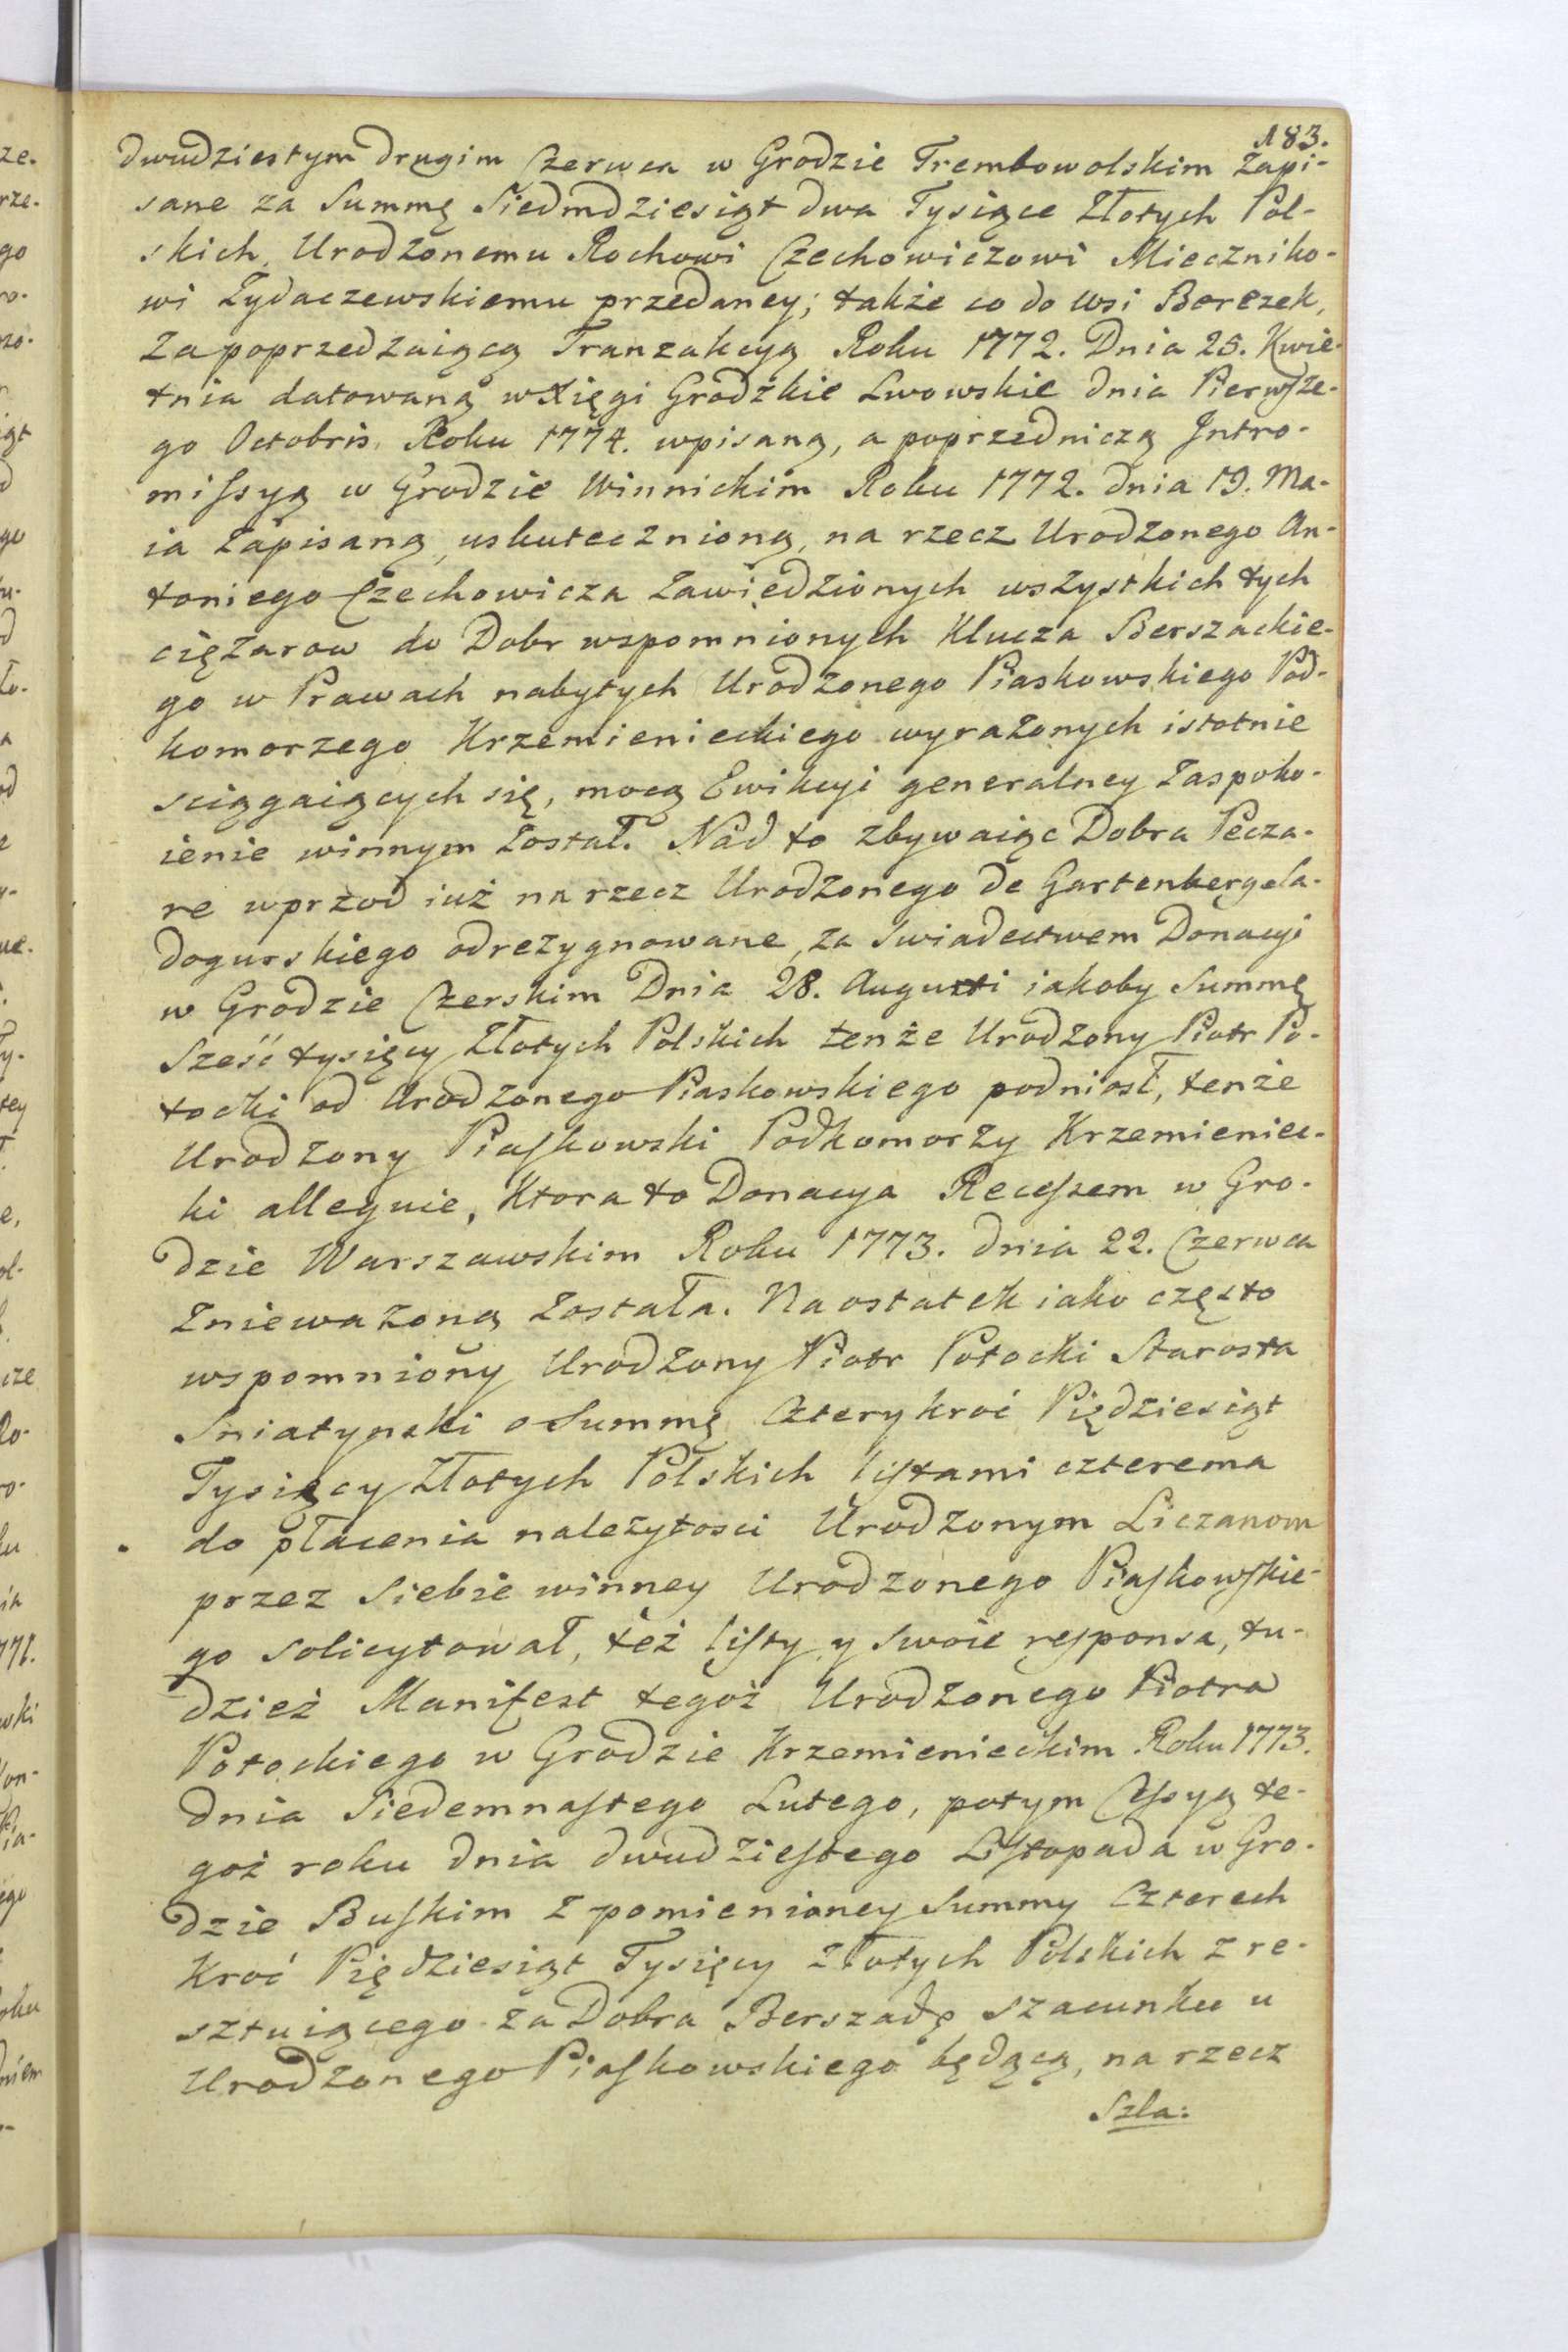 183.
dwudziestym drugim Czerwca w Grodzie Trembowolskim Zapi-
sane za Summę Siedmdziesiąt dwa Tysiące Złotych Pol-
skich, Urodzonemu Rochowi Czechowiczowi Mieczniko-
wi Zydaczewskiemu przedaney; także co do Wsi Berezek,
Zapoprzedzaiącą Tranzakcyą Roku 1772. Dnia 25. Kwie-
tnia datowaną w Xięgi Grodzkie Lwowskie dnia Pierwsze-
go Octobris Roku 1774. wpisaną, a poprzedniczą Intro-
missyą w Grodzie Winnickim Roku 1772. dnia 19. Ma-
ia Zapisaną, uskutecznioną, na rzecz Urodzonego An-
toniego Czechowicza Zawiedzionych wszystkich tych
ciężarow do Dobr wspomnionych Klucza Berszackie-
go w Prawach nabytych Urodzonego Piaskowskiego Pod-
komorzego Krzemienieckiego wyrażonych istotnie
sciągaiących się, mocą Ewikcyi generalney Zaspoko-
ienie winnym Został. Nad to zbywaiąc Dobra Pecza-
re wprzod iuż na rzecz Urodzonego de Gartenberg sa-
dogurskiego odrezygnowane, za Swiadectwem Donacyi
w Grodzie Czerskim Dnia 28. Augusti iakoby Summę
Sześć tysięcy Złotych Polskich tenże Urodzony Piotr Po-
tocki od Urodzonego Piaskowskiego podniosł, tenże
Urodzony Piaskowski Podkomorzy Krzemieniec-
ki alleguie, Ktora to Donacya Recessem w Gro-
dzie Warszawskim Roku 1773. dnia 22. Czerwca
Zniewazoną Została. Na ostatek iako często
wspomniony Urodzony Piotr Potocki Starosta
Sniatynski o Summę Cztery kroć Piędziesiąt
Tysięcy Złotych Polskich listami czterema
do płacenia należytosci Urodzonym Liczanom
przez Siebie winney Urodzonego Piaskowskie-
go Solicytował, też listy y Swoie responsa, tu-
dzież Manifest tegoż Urodzonego Piotra
Potockiego w Grodzie Krzemienieckim Roku 1773.
dnia Siedemnastego Lutego, potym Cessyą te-
goż roku dnia dwudziestego Listopada w Gro-
dzie Buskim Z pomienioney Summy Czterech
Kroć Piędziesiąt Tysięcy Złotych Polskich z re-
sztuiącego za Dobra Berszadę szacunku u
Urodzonego Piaskowskiego będącą, na rzecz
Szla: